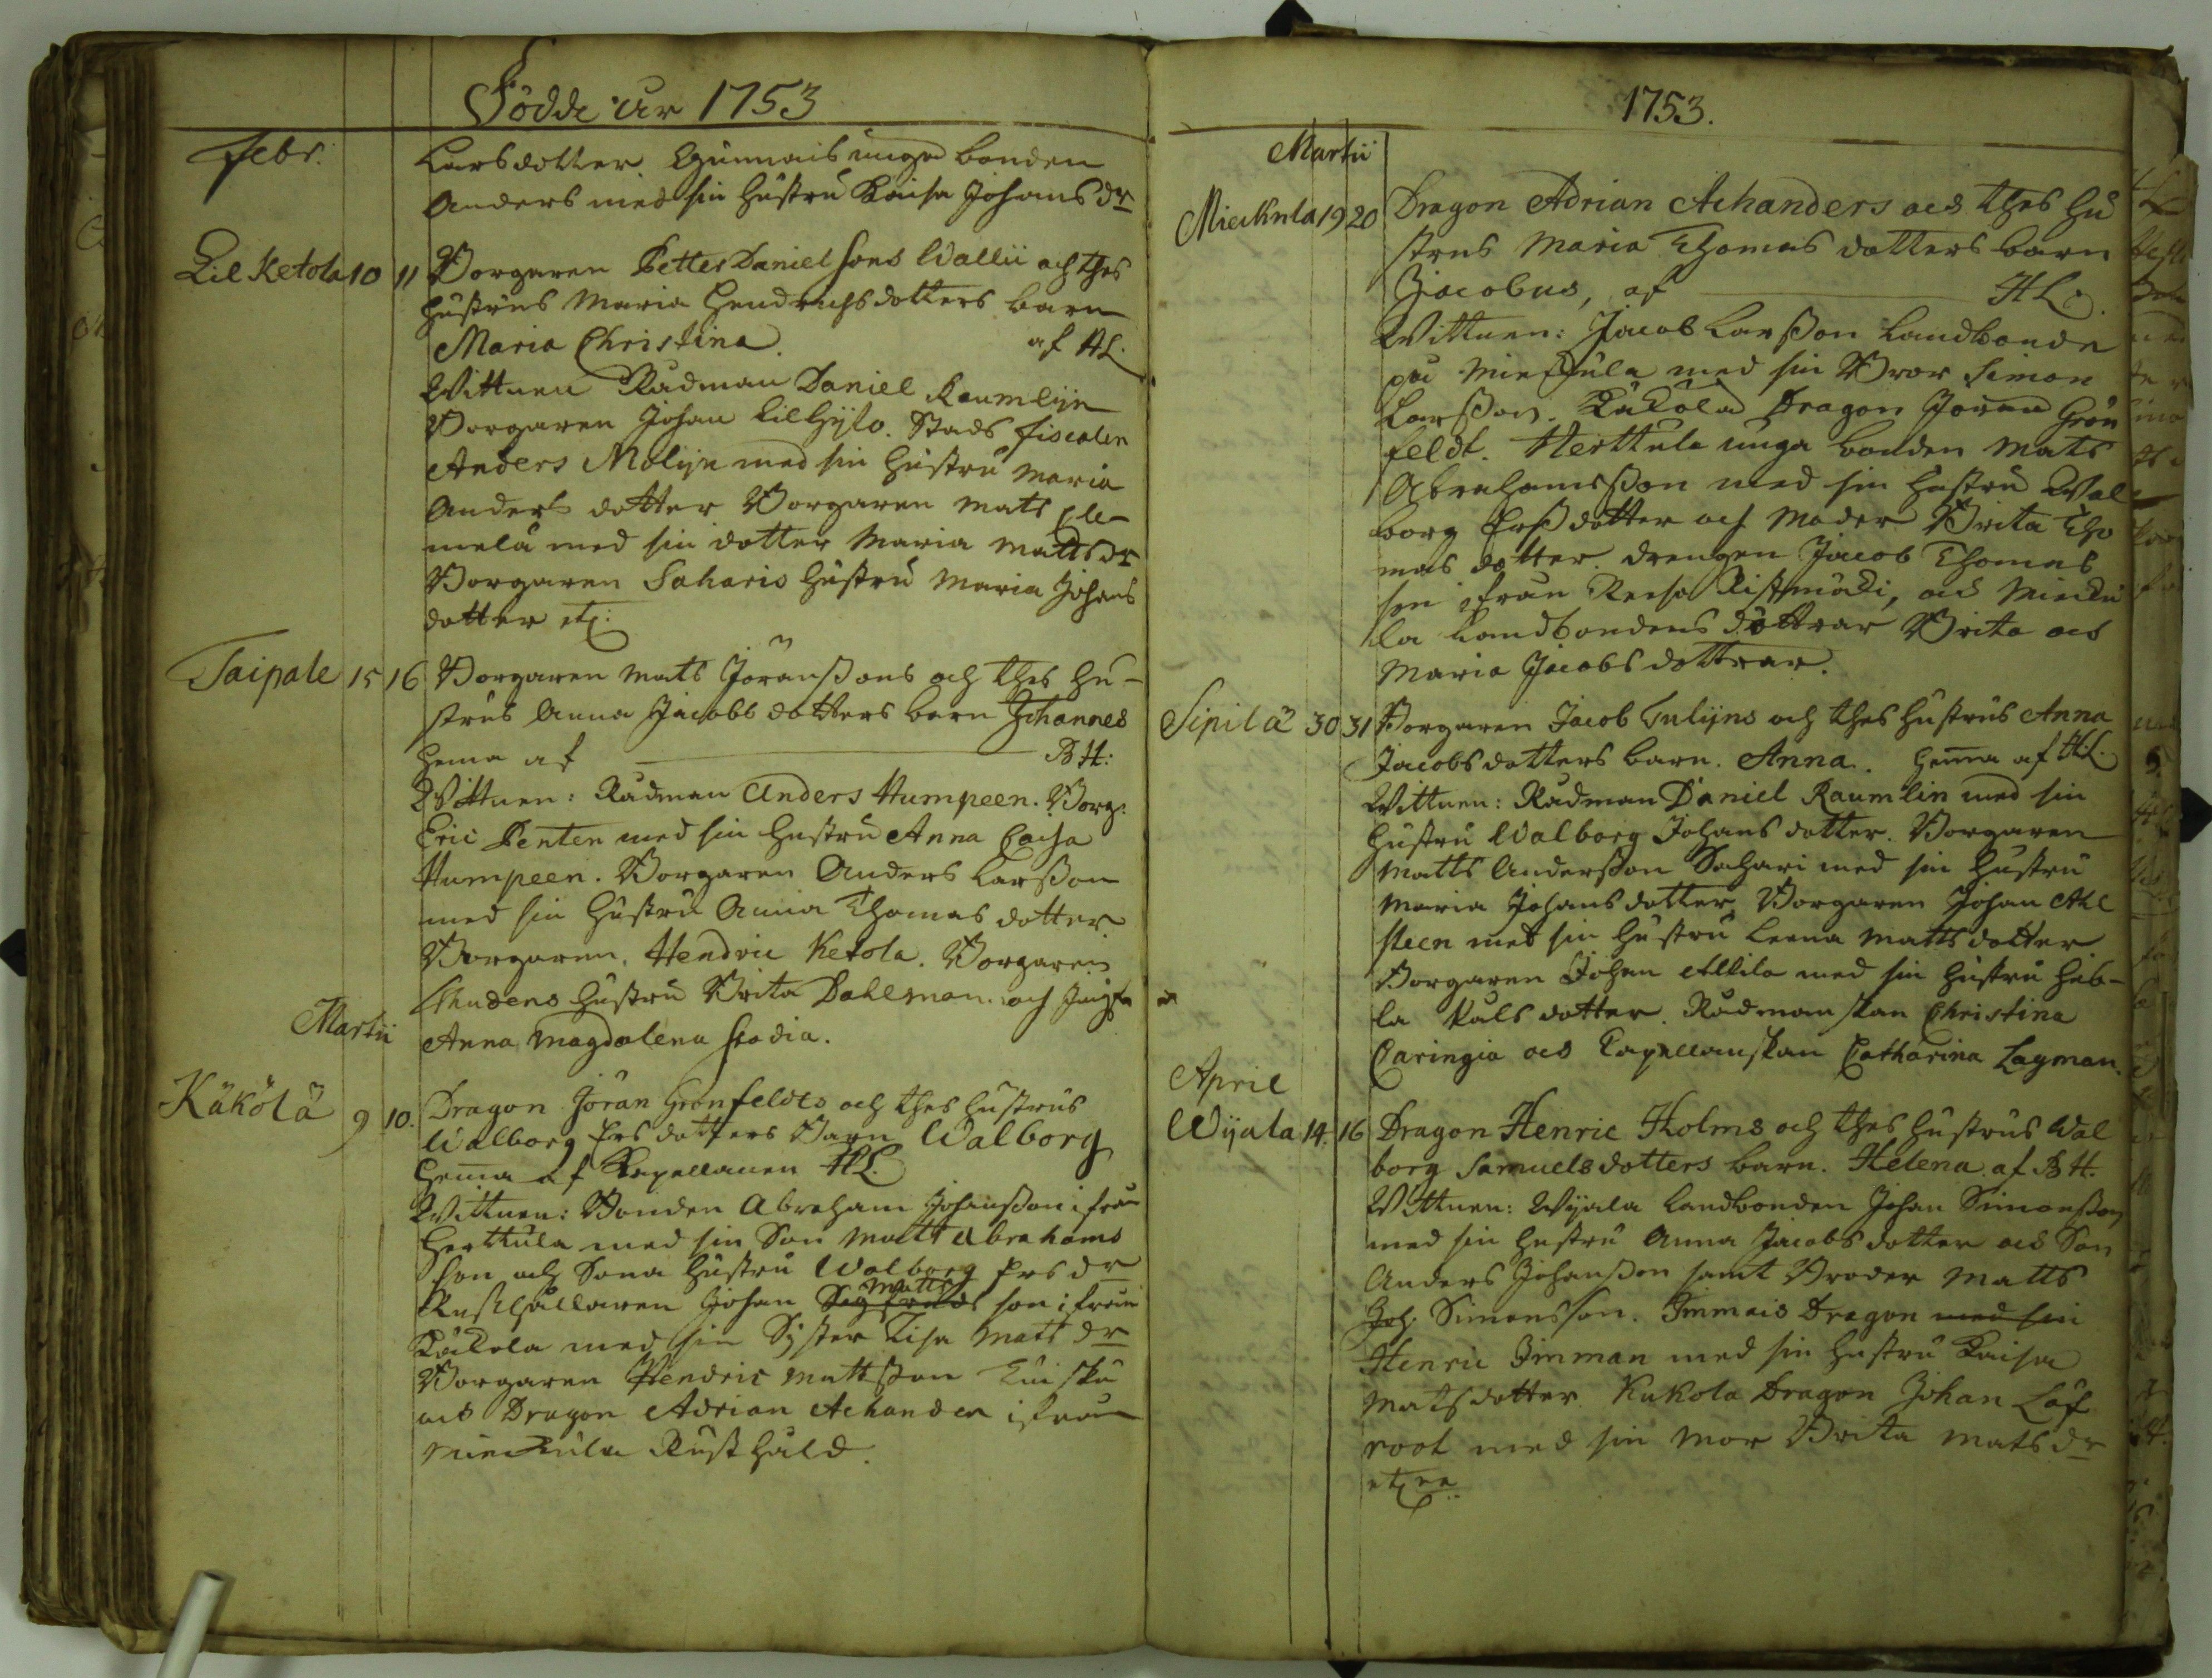 Födde åhr 1753
Febr.
Larsdotter. Gunnais unga bonden
Anders med sin hustru Caisa Johansdr
Lil Ketola 10 11 Borgaren Petter Danielsons Wallii och thes
hustrus Maria Hendrichsdotters barn
Maria Christina. af HL.
Wittnen Rådman Daniel Raumlijn
Borgaren Johan Lilhylo. Stads fiscalen
Anders Molijn med sin hustru Maria
Anders dotter Borgaren Mats
mela med sin dotter Maria Mattsdr
Borgaren Saharis hustru Maria Johans
dotter etc:
Taipale 15 16 Borgaren Mats Jöranssons och thes hu-
strus Anna Jacobs dotters barn Johannes
hema af BH:
Wittnen: Rådman Anders Humpeen. Borg:
Eric Penten med sin hustru Anna Caisa
Humpeen. Borgaren Anders Larsson
med sin hustru Anna Thomas dotter
Borgaren, Hendric Ketola. Borgaren
hustru Brita Dahlman. och Jungfr
Martii
Anna Magdalena
Käkölä 9 10. Dragon Jöran Grönfeldts och thes hustrus
Walborg Ersdotters Barn Walborg
hema af Kapellanen HL.
Wittnen: Bonden Abraham Johansson ifrån
Herttula med sin Son Matts Abrahams
son och Sona hustru Walborg Ersdr
Matts
Rusthållaren Johan Sigfreds son ifrån
Käkola med sin Syster Lisa Matsdr
Borgaren Hendric Mattsson
och Dragon Adrian Achander ifrån
Mieckula Rusthåld.
1753.
Martii
Mieckula 19 20 Dragon Adrian Achanders och thes hu
strus Maria Thomas dotters barn
Jacobus, af HL.
Wittnen: Jacob Larsson Landbonde
på Mieckula med sin Bror Simon
Larsson. Käkola Dragon Jöran Grön
feldt. Herttula unga bonden Mats
Abrahamsson med sin hustru Wal
borg Ersdotter och Moder Brita Tho
mas dotter. drengen Jacob Thomas
son ifrån Reeso Ristimäki, och Miecku
la Landbondens döttrar Brita och
Maria Jacobs dottrar.
Sipilä 30 31 Borgaren Jacob Tulijns och thes hustrus Anna
Jacobsdotters barn. Anna. hema af HL.
Wittnen: Rådman Daniel Raumlin med sin
hustru Walborg Johans dotter. Borgaren
Matts Andersson Sahari med sin hustru
Maria Johans dotter Borgaren Johan Ahl
steen med sin hustru Leena Matts dotter
Borgaren Johan Allila med sin hustru Heb-
la Påls dotter. Rådmanskan Christina
Caringia och Capellanskan Catharina Layman.
April
Wijala 14. 16 Dragon Henric Holms och thes hustrus Wal
borg Samuelsdotters barn. Helena af BH.
Wittnen: Wijala Landbonden Johan Simonsson
med sin hustru Anna Jacobs dotter och Son
Anders Johansson samt Broder Matts
Joh. Simonsson. Immais Dragon med sin
Henric Imman med sin hustru Kaisa
Matsdotter Kukola Dragon Johan Löf
root med sin Mor Brita Matsdr
etc